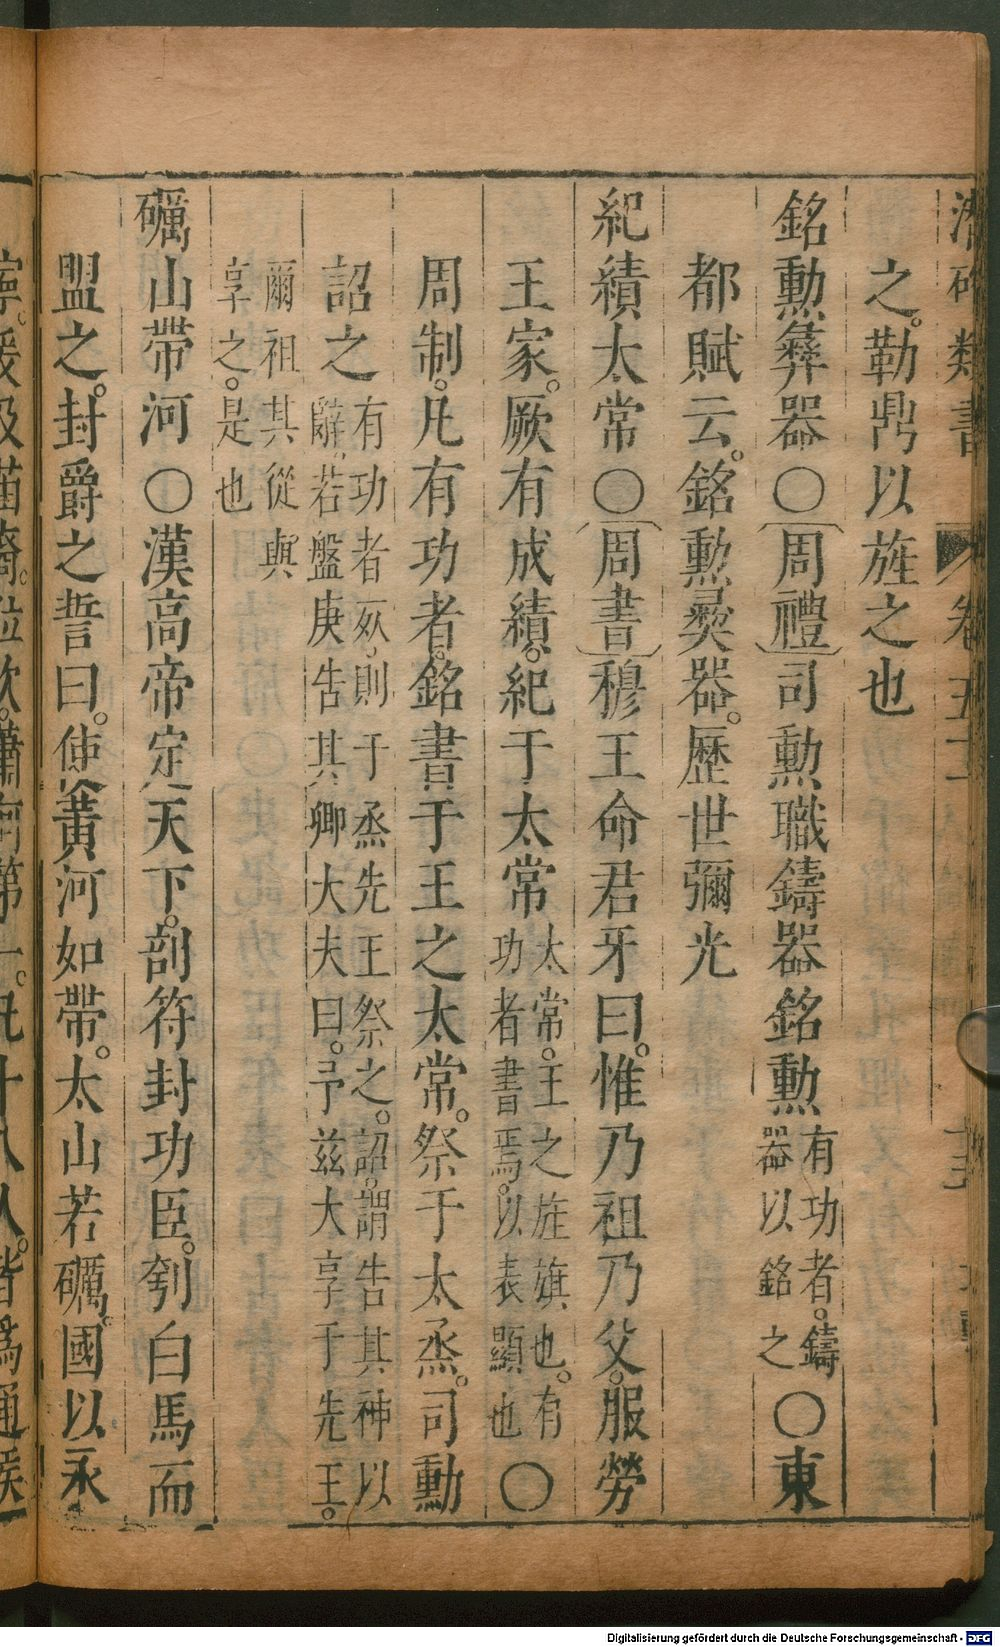 類書 卷五十
之。勒鼎以旌之也
銘勳彝器○周禮司勳職鑄器銘勳有功者。鑄器以銘之○東
都賦云。銘勳彝器。歷世彌光
紀績太常○周書穆王命君牙曰。惟乃祖乃父。服勞
王家。厥有成績。紀于太常太常。王之旌旗也。有功者書焉。以表顯也○
周制。凡有功者。銘書于王之太常。祭于太烝。司勳
詔之有功者死。則于烝先王祭之。詔。謂告其神以辭。若盤庚告其卿大夫曰。予茲大享于先王。
爾祖其從與享之。是也
礪山帶河○漢高帝定天下。剖符封功臣。刳白馬而
盟之。封爵之誓曰。使黃河如帶。太山若礪。國以永
寧。爰及苗裔。位次。蕭何第一。凡十八人。皆為通侯
Digitalisierung gefördert durch die Deutsche Forschungsgemeinschaft - DFG